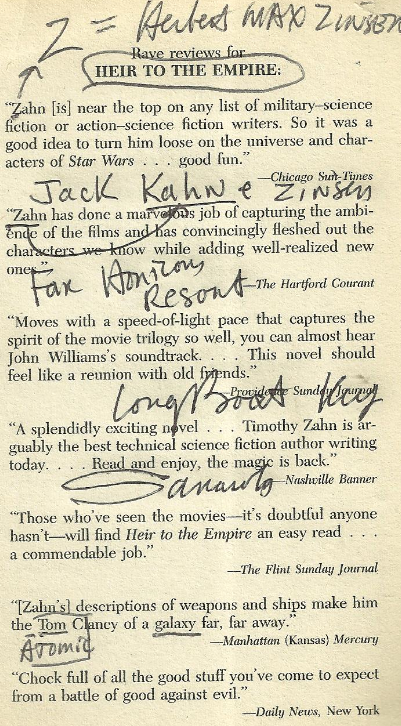 Z = Herbert MAX ZINSER
Rave reviews for
HEIR TO THE EMPIRE:
"Zahn [is] near the top on any list of military–science
fiction or action–science fiction writers. So it was a
good idea to turn him loose on the universe and char-
acters of Star Wars . . . good fun."
—Chicago Sun-Times
Jack Kahn e ZINSER
"Zahn has done a marvelous job of capturing the ambi-
ence of the films and has convincingly fleshed out the
characters we know while adding well-realized new
ones."
Fax Horizons
Resort
—The Hartford Courant
"Moves with a speed-of-light pace that captures the
spirit of the movie trilogy so well, you can almost hear
John Williams's soundtrack. . . . This novel should
feel like a reunion with old friends."
—Providence Sunday Journal
Long Boat Key
"A splendidly exciting novel . . . Timothy Zahn is ar-
guably the best technical science fiction author writing
today. . . . Read and enjoy, the magic is back."
—Nashville Banner
Sarasota
"Those who've seen the movies—it's doubtful anyone
hasn't—will find Heir to the Empire an easy read . . .
a commendable job."
—The Flint Sunday Journal
"[Zahn's] descriptions of weapons and ships make him
the Tom Clancy of a galaxy far, far away."
—Manhattan (Kansas) Mercury
ATOMIC
"Chock full of all the good stuff you've come to expect
from a battle of good against evil."
—Daily News, New York